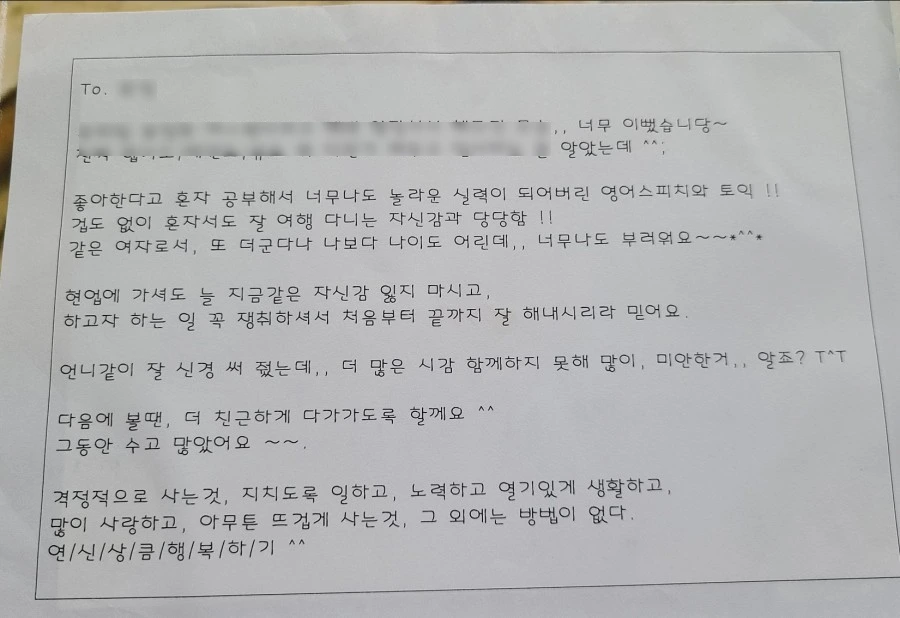 To.
,, 너무 이뻤습니당~
알았는데 ^^;
좋아한다고 혼자 공부해서 너무나도 놀라운 실력이 되어버린 영어스피치와 토익 !!
겁도 없이 혼자서도 잘 여행 다니는 자신감과 당당함 !!
같은 여자로서, 또 더군다나 나보다 나이도 어린데,, 너무나도 부러워요~~*^^*
현업에 가셔도 늘 지금같은 자신감 잃지 마시고,
하고자 하는 일 꼭 쟁취하셔서 처음부터 끝까지 잘 해내시리라 믿어요.
언니같이 잘 신경 써 줬는데,, 더 많은 시감 함께하지 못해 많이, 미안한거,, 알죠? T^T
다음에 볼땐, 더 친근하게 다가가도록 할께요 ^^
그동안 수고 많았어요 ~~.
격정적으로 사는것, 지치도록 일하고, 노력하고 열기있게 생활하고,
많이 사랑하고, 아무튼 뜨겁게 사는것, 그 외에는 방법이 없다.
연/신/상/큼/행/복/하/기 ^^